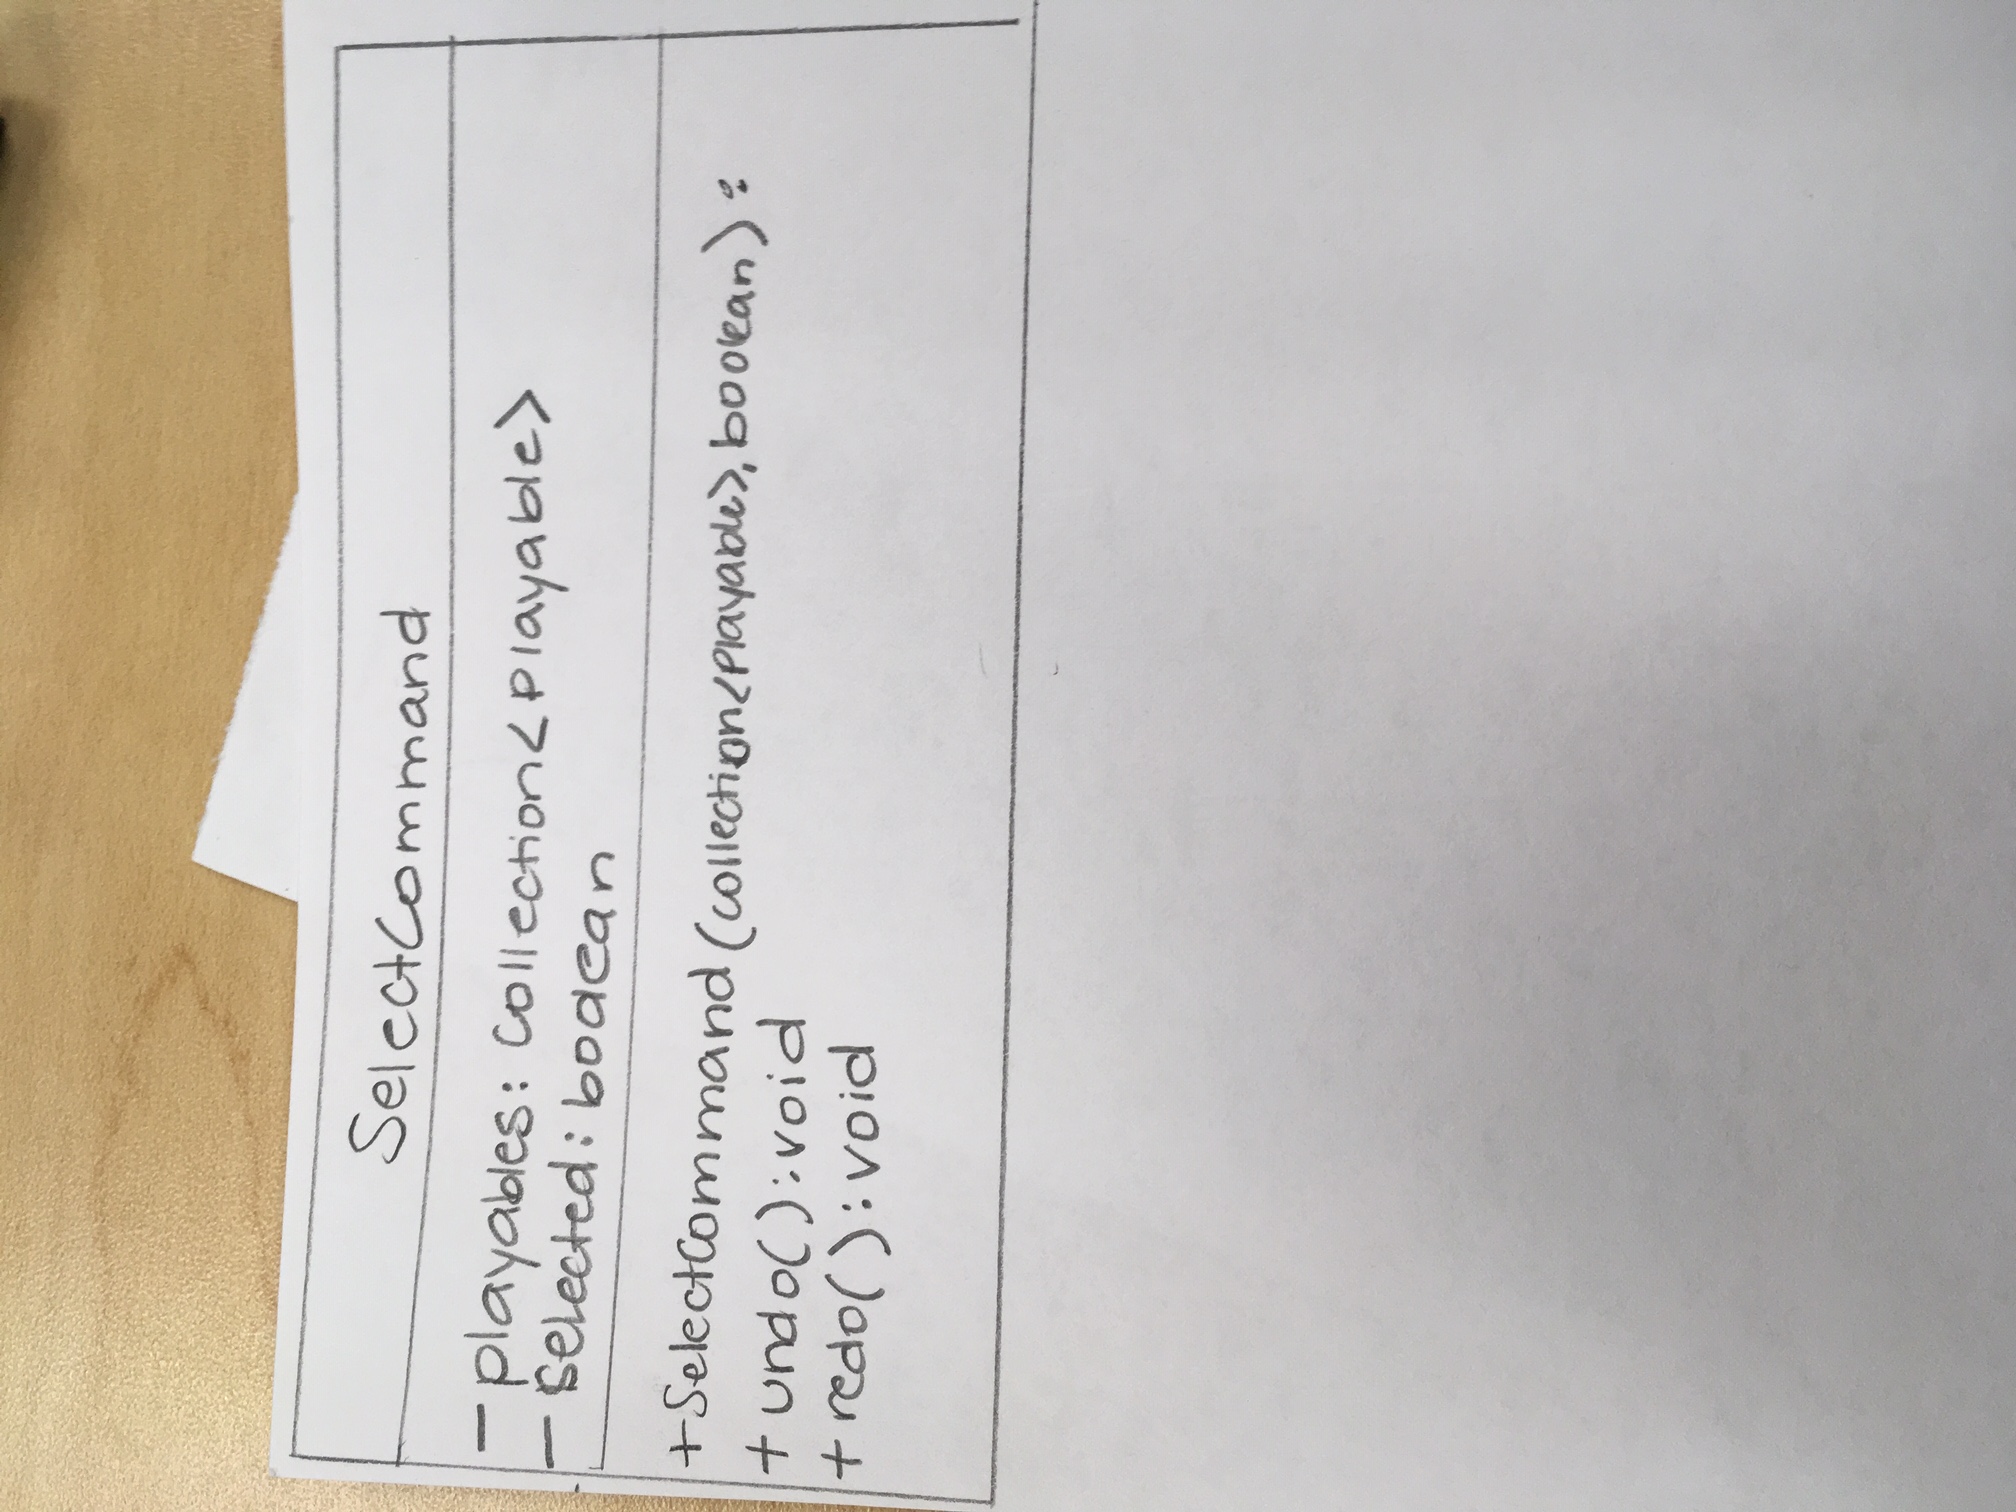 SelectCommand
- playables: Collection<Playable>
- selected: boolean
+SelectCommand(Collection<Playable>, boolean):
+ undo(): void
+ redo(): void